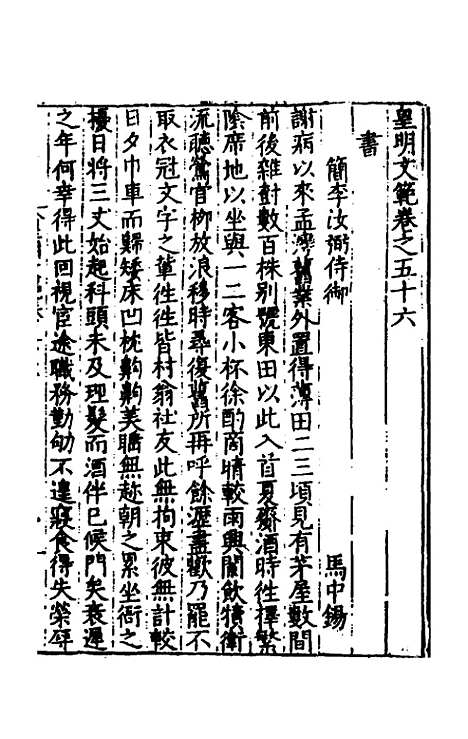 皇明文範卷之五十六
書
簡李汝弼侍御 馬中錫
謝病以來孟濟舊業外置得薄田二三頃見有茅屋數間
前後雜對數百株別號東田以此入首夏齎酒時徃擇繁
陰席地以坐與一二客小杯徐酌商晴較雨興闌飲積衡
流聽鶯官柳放浪移時尋復舊所再呼餘瀝盡歡乃罷不
取衣冠文字之輩徃徃皆村翁社友此無拘束彼無計較
日夕巾車而歸矮床凹枕齁齁美睡無趂朝之累坐衙之
擾日將三丈始起科頭未及理髮而酒伴已候門矣衰遲
之年何幸得此回視宦途職務勤劬不遑寢食得失榮辱